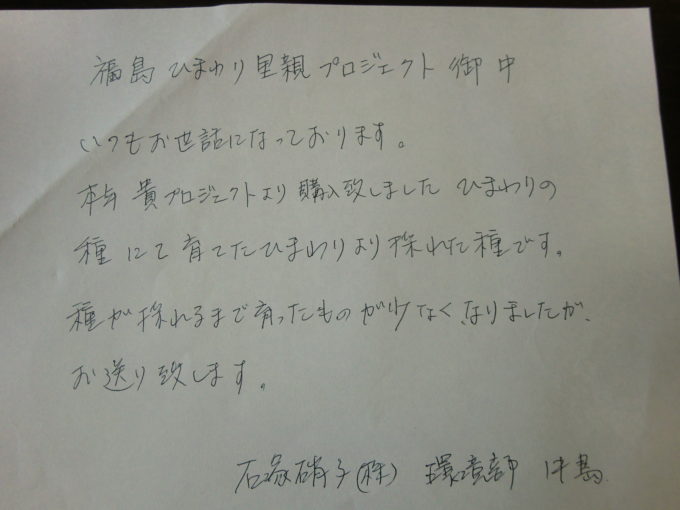 福島 ひまわり里親プロジェクト 御中
いつもお世話になっております。
本年 貴プロジェクトより購入致しました ひまわりの
種 にて 育てたひまわりより採れた種です。
種が採れるまで育ったものが少なくなりましたが、
お送り致します。
石塚硝子(株) 環境部 中島